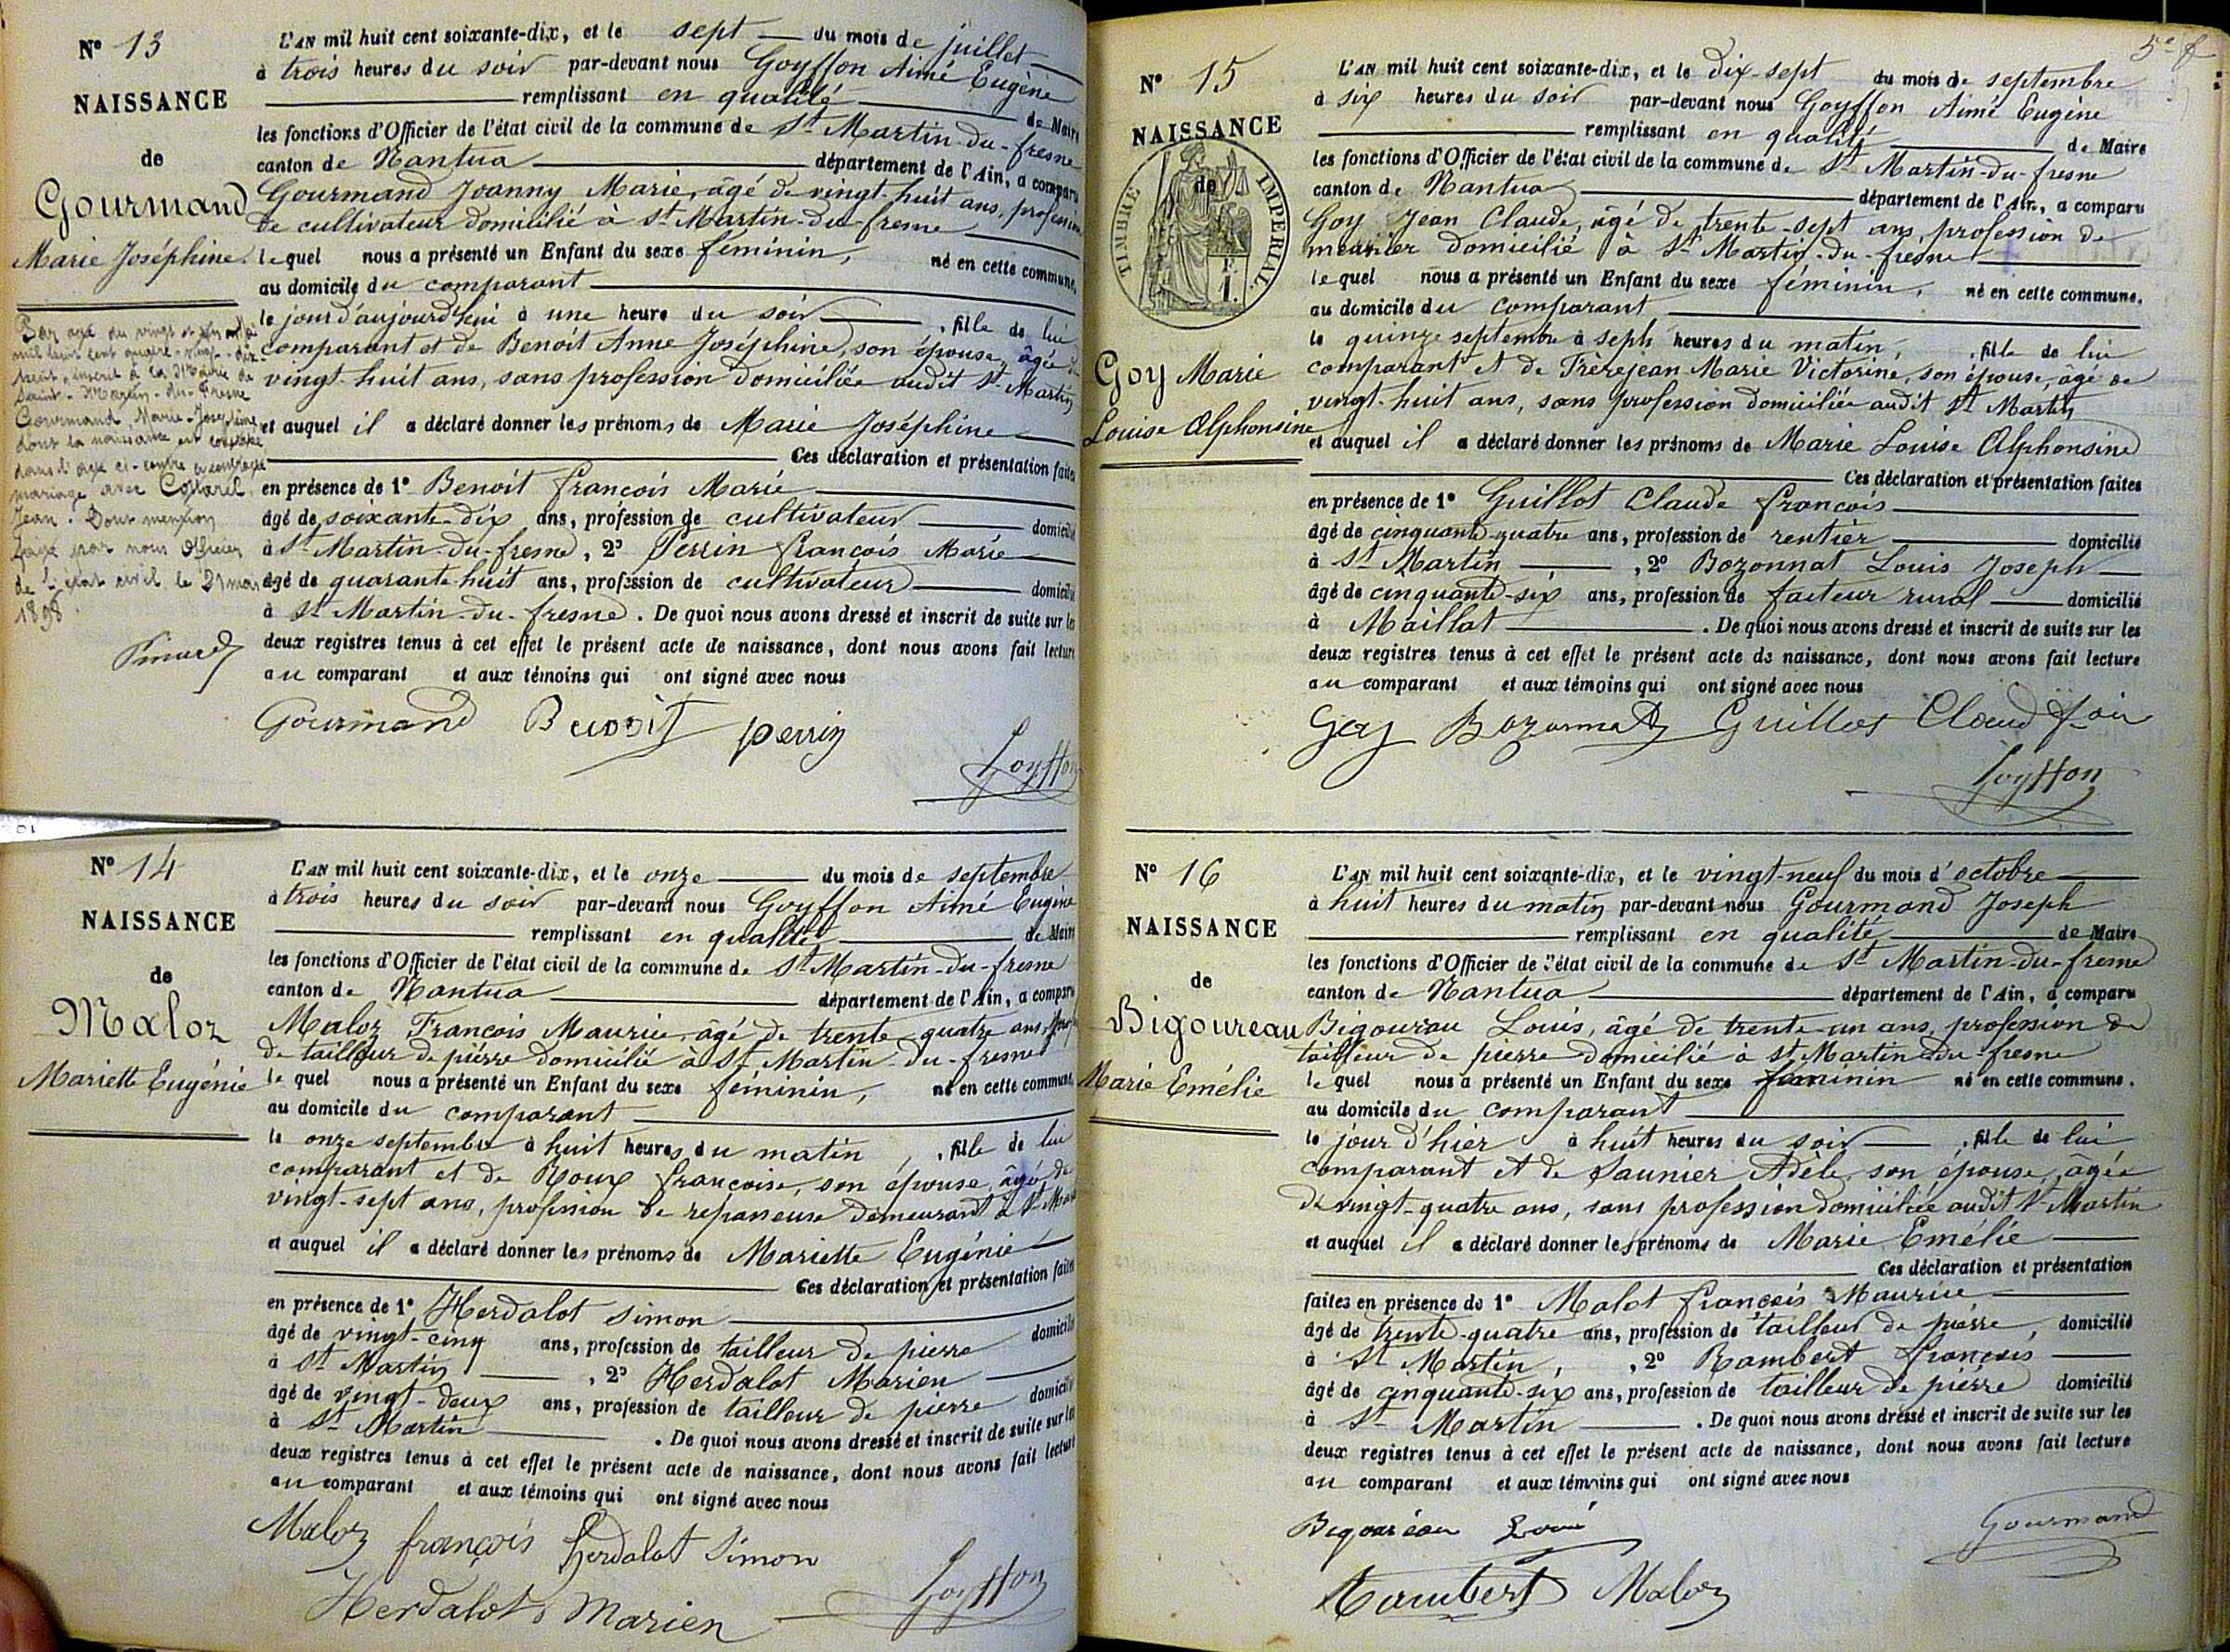 N° 13
NAISSANCE
de
Gourmand
Marie Joséphine.
Par acte du vingt et un mai
mil huit cent quatre-vingt-dix
huit, inscrit à la Mairie de
Saint-Martin-du-Fresne
Gourmand Marie-Joséphine
dont la naissance est constatée
dans l'acte ci-contre a contracté
mariage avec Collarel
Jean. Dont mention
faite par nous Officier
de l'état civil le 21 mai
1898
L'AN mil huit cent soixante-dix, et le sept du mois de juillet
à trois heures du soir par-devant nous Goyffon Aimé Eugène
remplissant en qualité de Maire
les fonctions d'Officier de l'état civil de la commune de St Martin-du-fresne
canton de Nantua département de l'Ain, a comparu
Gourmand Joanny Marie, âgé de vingt-huit ans, profession
de cultivateur domicilié à St-Martin-du-fresne
lequel nous a présenté un Enfant du sexe féminin, né en cette commune,
au domicile du comparant
le jour d'aujourd'hui à une heure du soir, fille de lui
comparant et de Benoit Anne Joséphine, son épouse, âgée de
vingt-huit ans, sans profession domiciliée audit St-Martin
et auquel il a déclaré donner les prénoms de Marie Joséphine
Ces déclaration et présentation faites
en présence de 1° Benoit françois Marie
âgé de soixante-dix ans, profession de cultivateur domicilié
à St-Martin-du-fresne, 2° Perrin françois Marie
âgé de quarante-huit ans, profession de cultivateur domicilié
à St-Martin-du-fresne. De quoi nous avons dressé et inscrit de suite sur les
deux registres tenus à cet effet le présent acte de naissance, dont nous avons fait lecture
au comparant et aux témoins qui ont signé avec nous
Gourmand Benoit perrin
Goyffon
N° 14
NAISSANCE
de
Maloz
Mariette Eugénie
L'AN mil huit cent soixante-dix, et le onze du mois de septembre
à trois heures du soir par-devant nous Goyffon Aimé Eugène
remplissant en qualité de Maire
les fonctions d'Officier de l'état civil de la commune de St Martin-du-fresne
canton de Nantua département de l'Ain, a comparu
Maloz François Maurice, âgé de trente-quatre ans, prof
de tailleur de pierre domicilié à St-Martin-du-fresne
le quel nous a présenté un Enfant du sexe féminin, né en cette commune,
au domicile du comparant
le onze septembre à huit heures du matin, fille de lui
comparant et de Roux françoise, son épouse, âgé de
vingt-sept ans, profession de repaneuse demeurant à St-Martin
et auquel il a déclaré donner les prénoms de Mariette Eugénie
Ces déclaration et présentation faites
en présence de 1° Herdalot simon
âgé de vingt-cinq ans, profession de tailleur de pierre domicilié
à St Martin, 2° Herdalot Marien
âgé de vingt-deux ans, profession de tailleur de pierre domicilié
à St Martin. De quoi nous avons dressé et inscrit de suite sur les
deux registres tenus à cet effet le présent acte de naissance, dont nous avons fait lecture
au comparant et aux témoins qui ont signé avec nous
Maloz françois herdalot simon
Herdalot Marien Goyffon
5e f
N° 15
NAISSANCE
de
TIMBRE IMPERIAL
Goy Marie
Louise Alphonsine
L'AN mil huit cent soixante-dix, et le dix-sept du mois de septembre
à six heures du soir par-devant nous Goyffon Aimé Eugène
remplissant en qualité de Maire
les fonctions d'Officier de l'état civil de la commune de St Martin-du-fresne
canton de Nantua département de l'Ain, a comparu
Goy Jean Claude, âgé de trente-sept ans, profession de
meunier domicilié à St-Martin-du-fresne
le quel nous a présenté un Enfant du sexe féminin, né en cette commune.
au domicile du comparant
le quinze septembre à sept heures du matin, fille de lui
comparant et de Frèrejean Marie Victorine, son épouse, âgé de
vingt-huit ans, sans profession domiciliée audit St Martin
et auquel il a déclaré donner les prénoms de Marie Louise Alphonsine
Ces déclaration et présentation faites
en présence de 1° Guillot Claude françois
âgé de cinquante-quatre ans, profession de rentier domicilié
à St Martin, 2° Bozonnat Louis Joseph
âgé de cinquante-six ans, profession de facteur rural domicilié
à Maillat. De quoi nous avons dressé et inscrit de suite sur les
deux registres tenus à cet effet le présent acte de naissance, dont nous avons fait lecture
au comparant et aux témoins qui ont signé avec nous
Goy Bozonnat Guillot Claud
Goyffon
N° 16
NAISSANCE
de
Bigoureau
Marie Emélie
L'AN mil huit cent soixante-dix, et le vingt-neuf du mois d'octobre
à huit heures du matin par-devant nous Gourmand Joseph
remplissant en qualité de Maire
les fonctions d'Officier de l'état civil de la commune de St Martin-du-fresne
canton de Nantua département de l'Ain, a comparu
Bigourau Louis, âgé de trente-un ans, profession de
tailleur de pierre domicilié à St Martin-du-fresne
le quel nous a présenté un Enfant du sexe féminin né en cette commune.
au domicile du comparant
le jour d'hier à huit heures du soir, fille de lui
comparant et de Saunier Adèle, son épouse, âgée
de vingt-quatre ans, sans profession domiciliée audit St-Martin
et auquel il a déclaré donner les prénoms de Marie Emélie
Ces déclaration et présentation
faites en présence de 1° Malot françois Maurice
âgé de trente-quatre ans, profession de tailleur de pierre, domicilié
à St Martin, 2° Rambert françois
âgé de cinquante-six ans, profession de tailleur de pierre domicilié
à St Martin. De quoi nous avons dressé et inscrit de suite sur les
deux registres tenus à cet effet le présent acte de naissance, dont nous avons fait lecture
au comparant et aux témoins qui ont signé avec nous
Bigouréau Loui Gourmand
Rambert Maloz